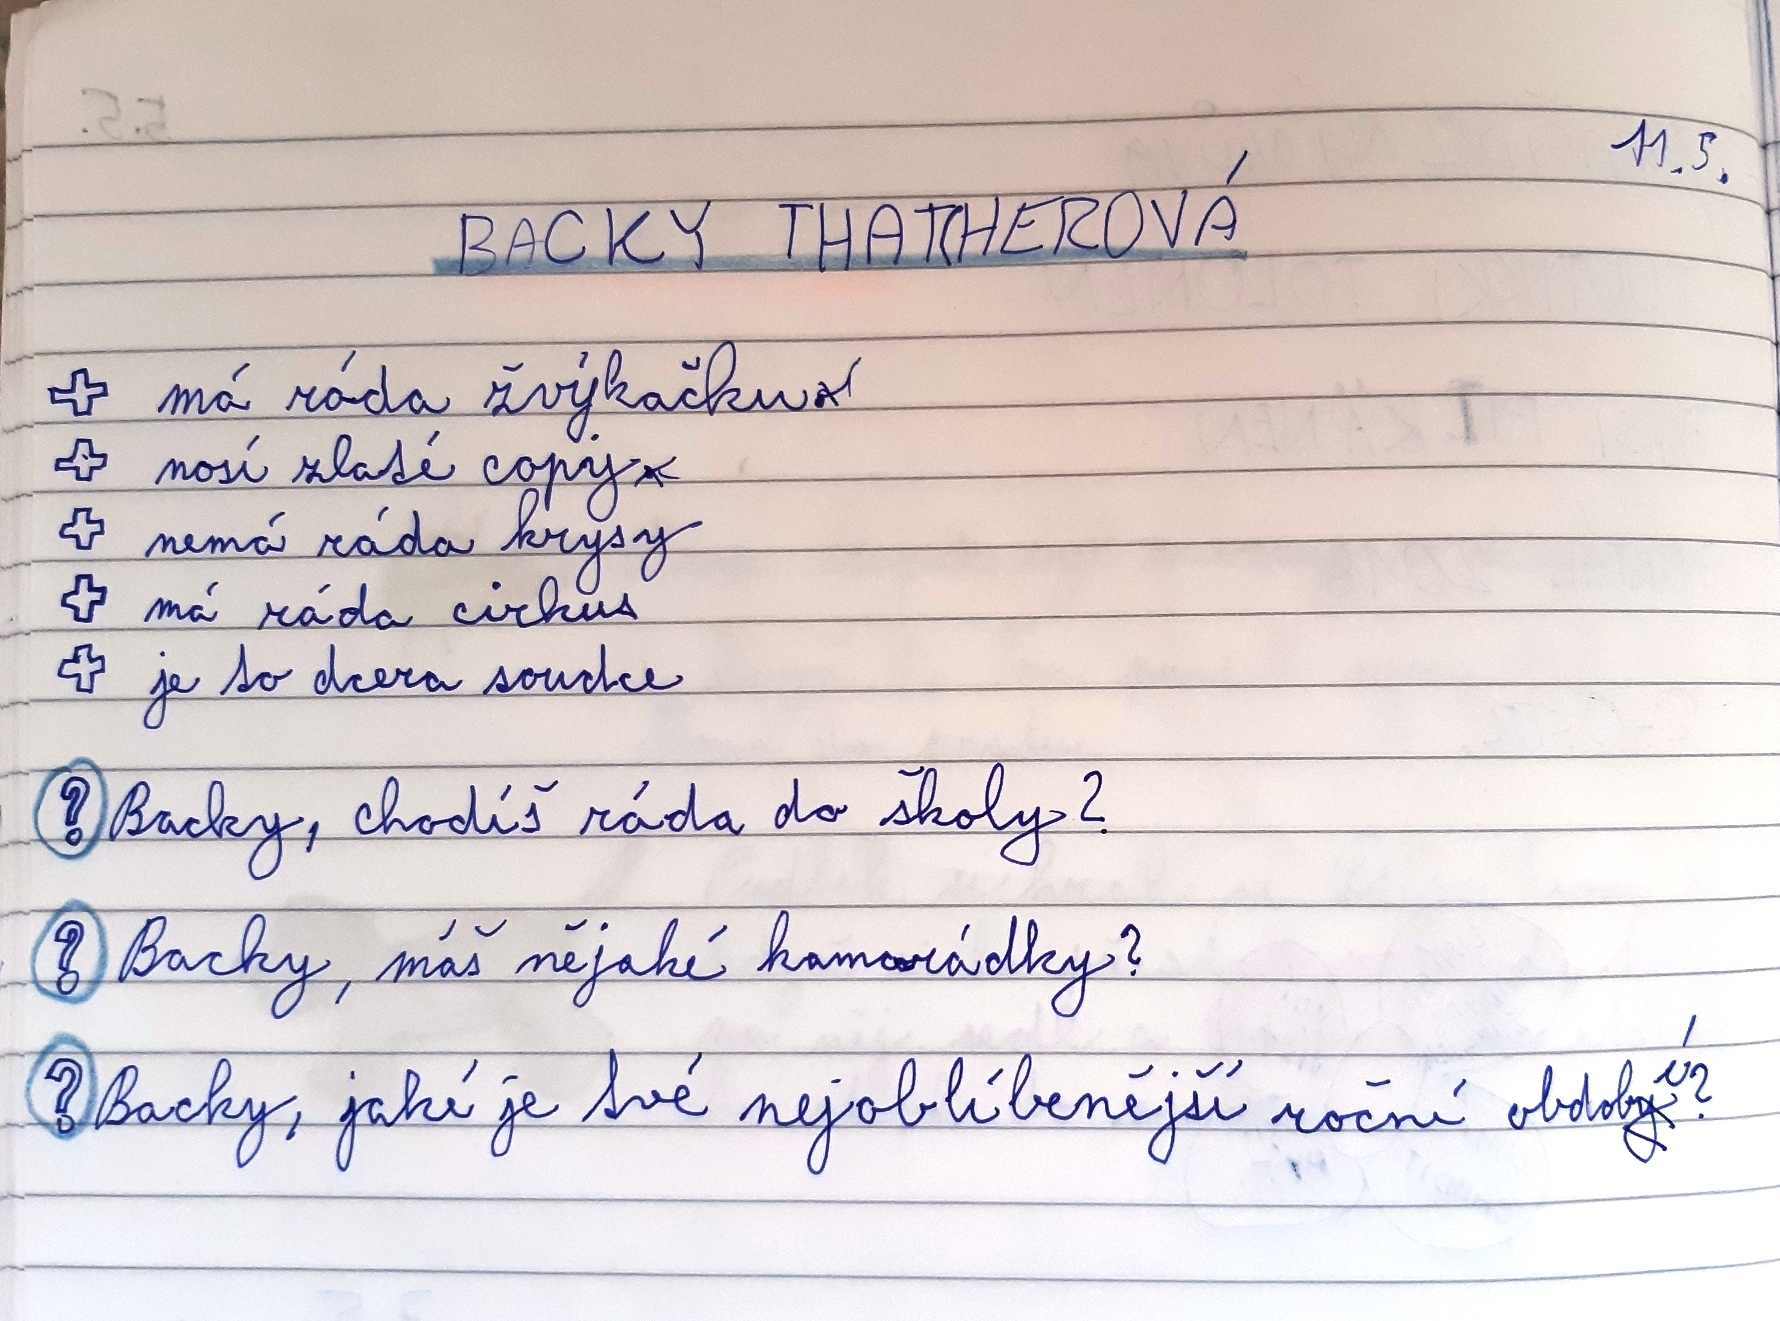 11.5.
BACKY THATCHEROVÁ
má ráda žvýkačku
nosí zlaté copy
nemá ráda krysy
má ráda cirkus
je to dcera soudce
? Backy, chodíš ráda do školy?
? Backy, máš nějaké kamarádky?
? Backy, jaké je tvé nejoblíbenější roční období?